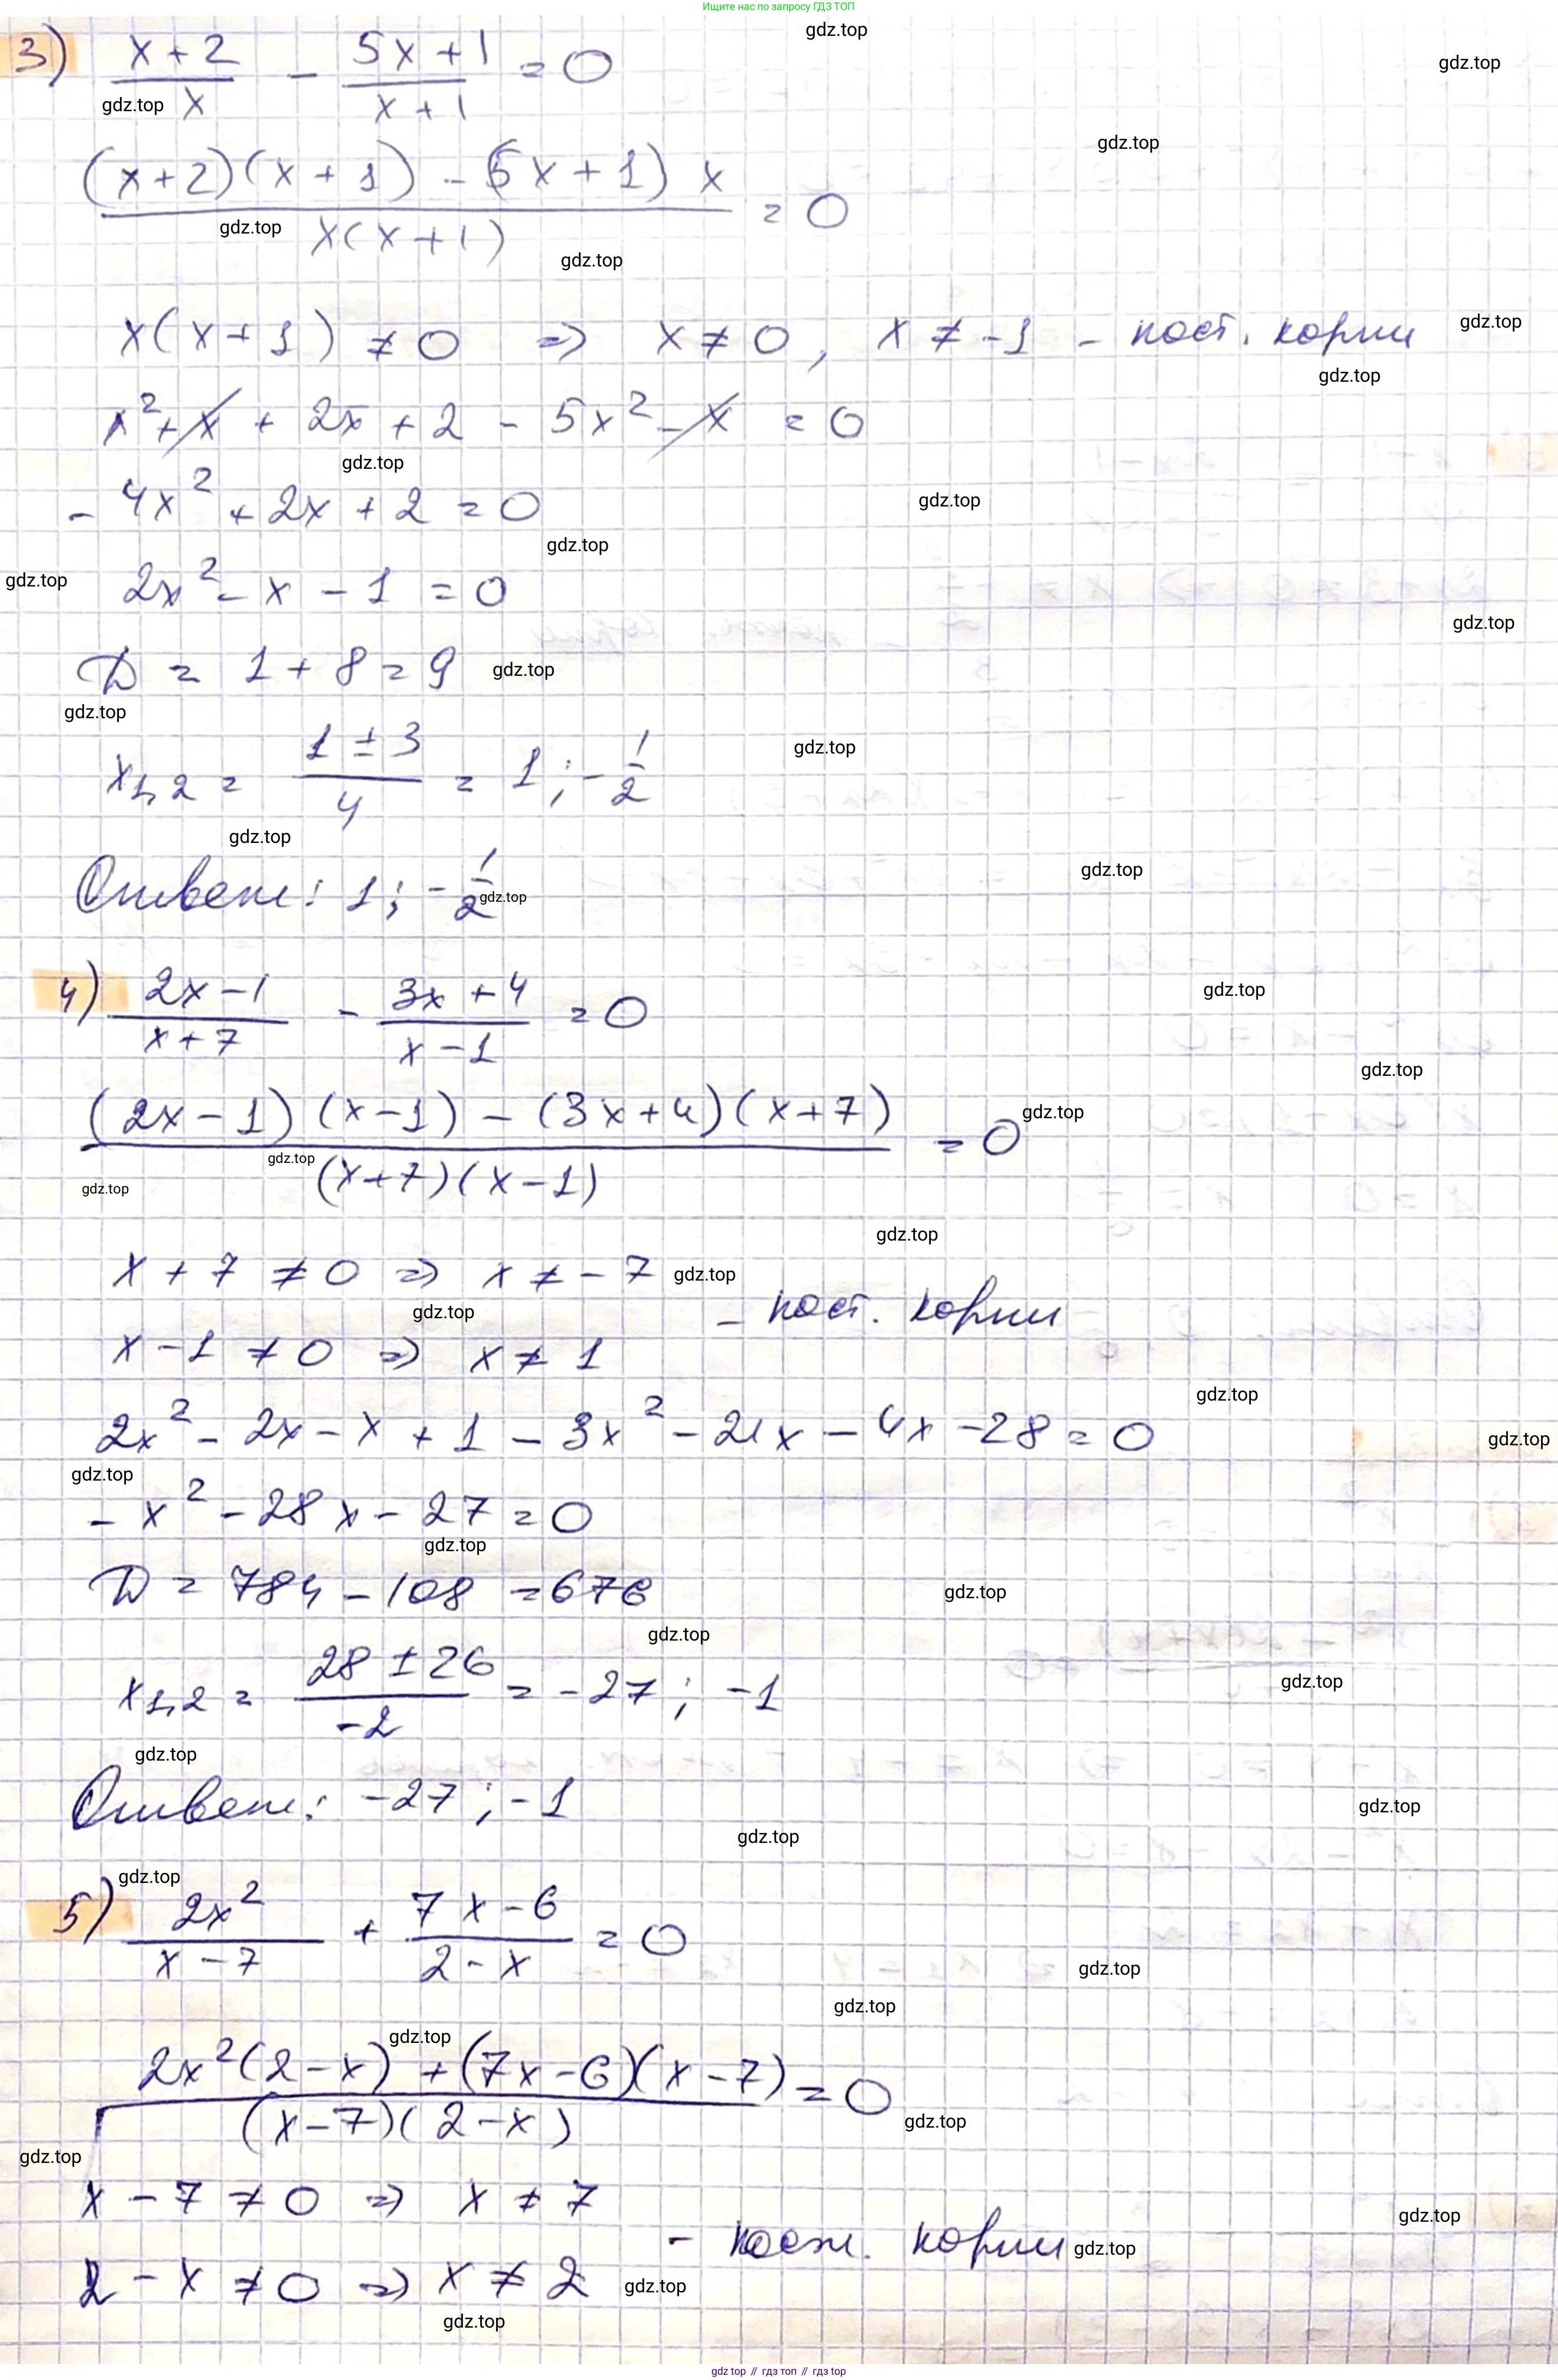 Ищите нас по запросу ГДЗ ТОП
3) (x+2)/x - (5x+1)/(x+1) = 0
((x+2)(x+1) - (5x+1)x)/(x(x+1)) = 0
x(x+1) ≠ 0 ⇒ x ≠ 0, x ≠ -1 - пост. корни
x² + x + 2x + 2 - 5x² - x = 0
-4x² + 2x + 2 = 0
2x² - x - 1 = 0
D = 1 + 8 = 9
x₁,₂ = (1 ± 3)/4 = 1; -1/2
Ответ: 1; -1/2
4) (2x-1)/(x+7) - (3x+4)/(x-1) = 0
((2x-1)(x-1) - (3x+4)(x+7))/((x+7)(x-1)) = 0
x + 7 ≠ 0 ⇒ x ≠ -7
- пост. корни
x - 1 ≠ 0 ⇒ x ≠ 1
2x² - 2x - x + 1 - 3x² - 21x - 4x - 28 = 0
-x² - 28x - 27 = 0
D = 784 - 108 = 676
x₁,₂ = (28 ± 26)/(-2) = -27; -1
Ответ: -27; -1
5) 2x²/(x-7) + (7x-6)/(2-x) = 0
(2x²(2-x) + (7x-6)(x-7))/((x-7)(2-x)) = 0
x - 7 ≠ 0 ⇒ x ≠ 7
- пост. корни
2 - x ≠ 0 ⇒ x ≠ 2
gdz top // гдз топ // gdz top